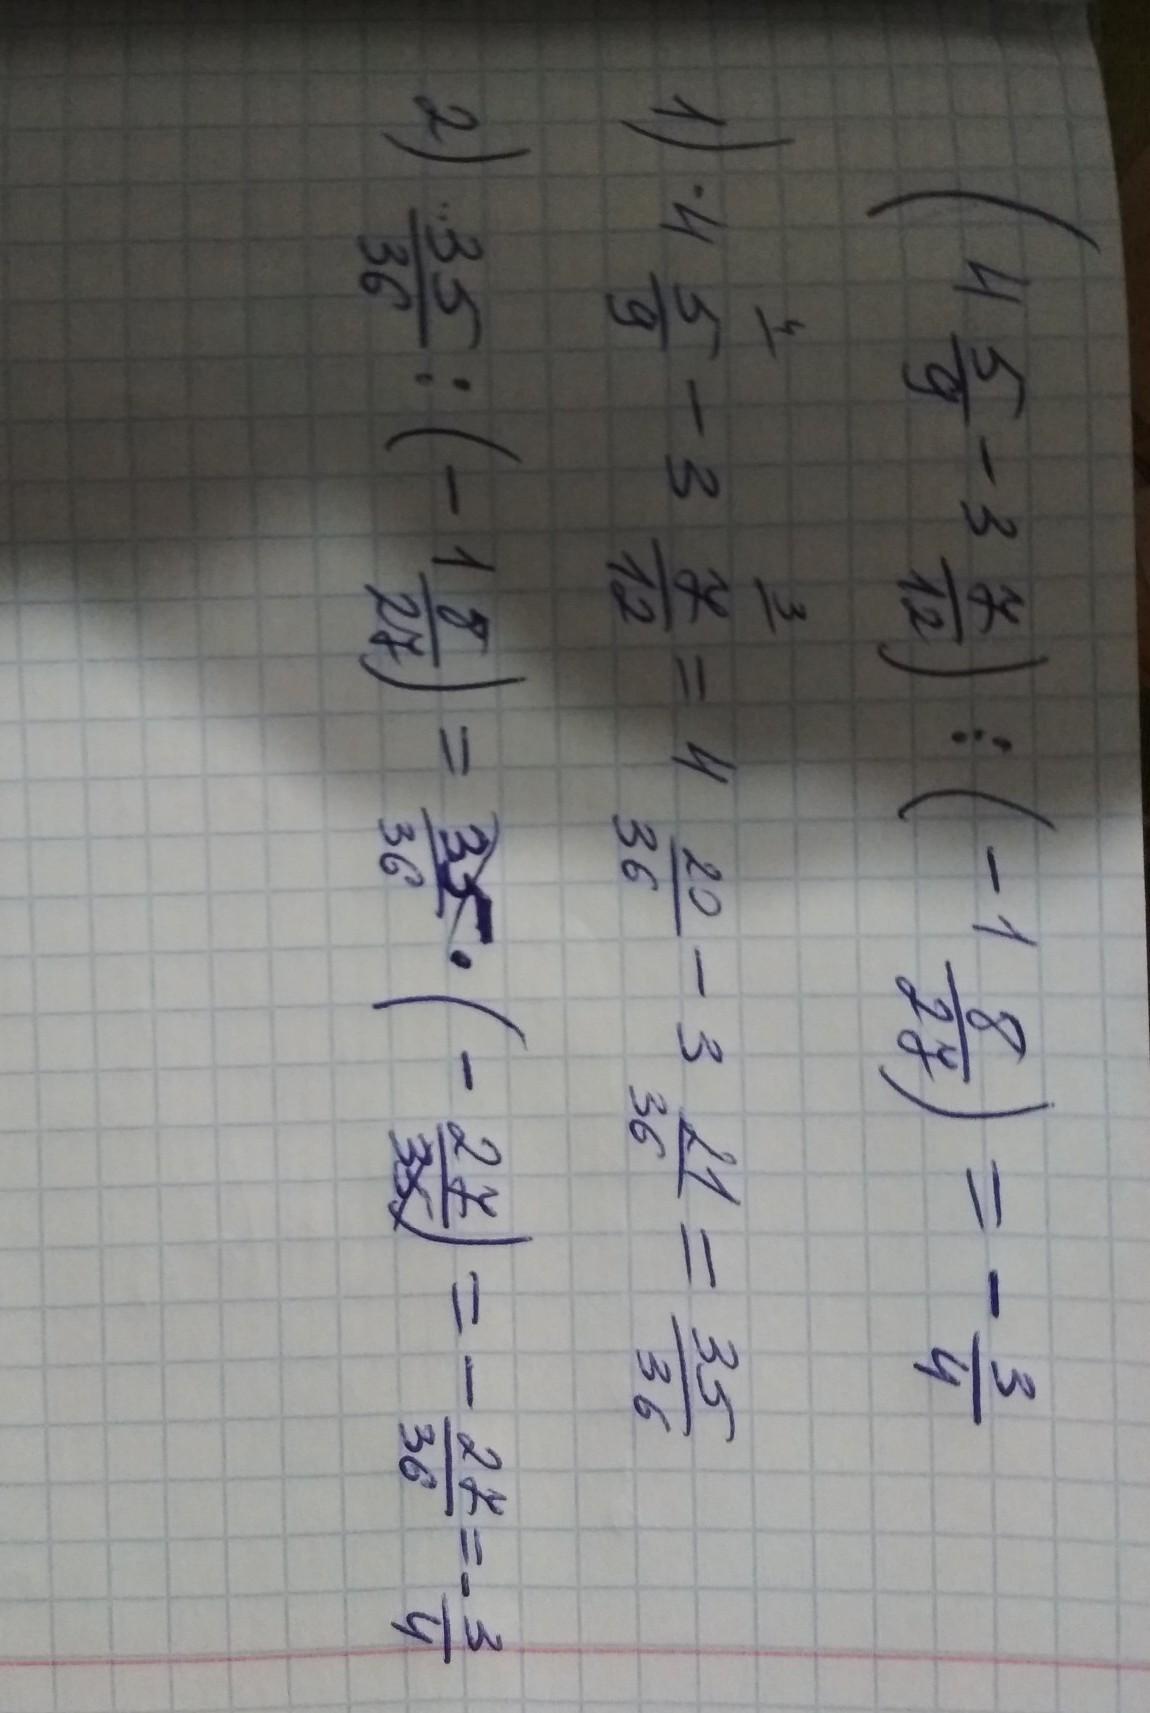 (4 5/9 - 3 7/12) : (-1 8/27) = - 3/4
1) 4 5/9 (4) - 3 7/12 (3) = 4 20/36 - 3 21/36 = 35/36
2) 35/36 : (-1 8/27) = 35/36 · (- 27/35) = - 27/36 = - 3/4